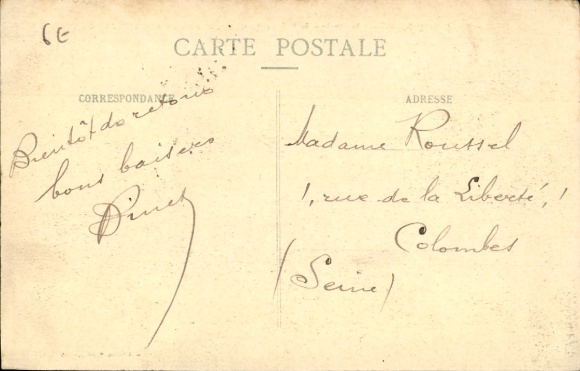 6E
CARTE POSTALE
CORRESPONDANCE
ADRESSE
Bientôt de retour
bons baisers
Madame Roussel
1, rue de la Liberté, 1
Colombes
(Seine)